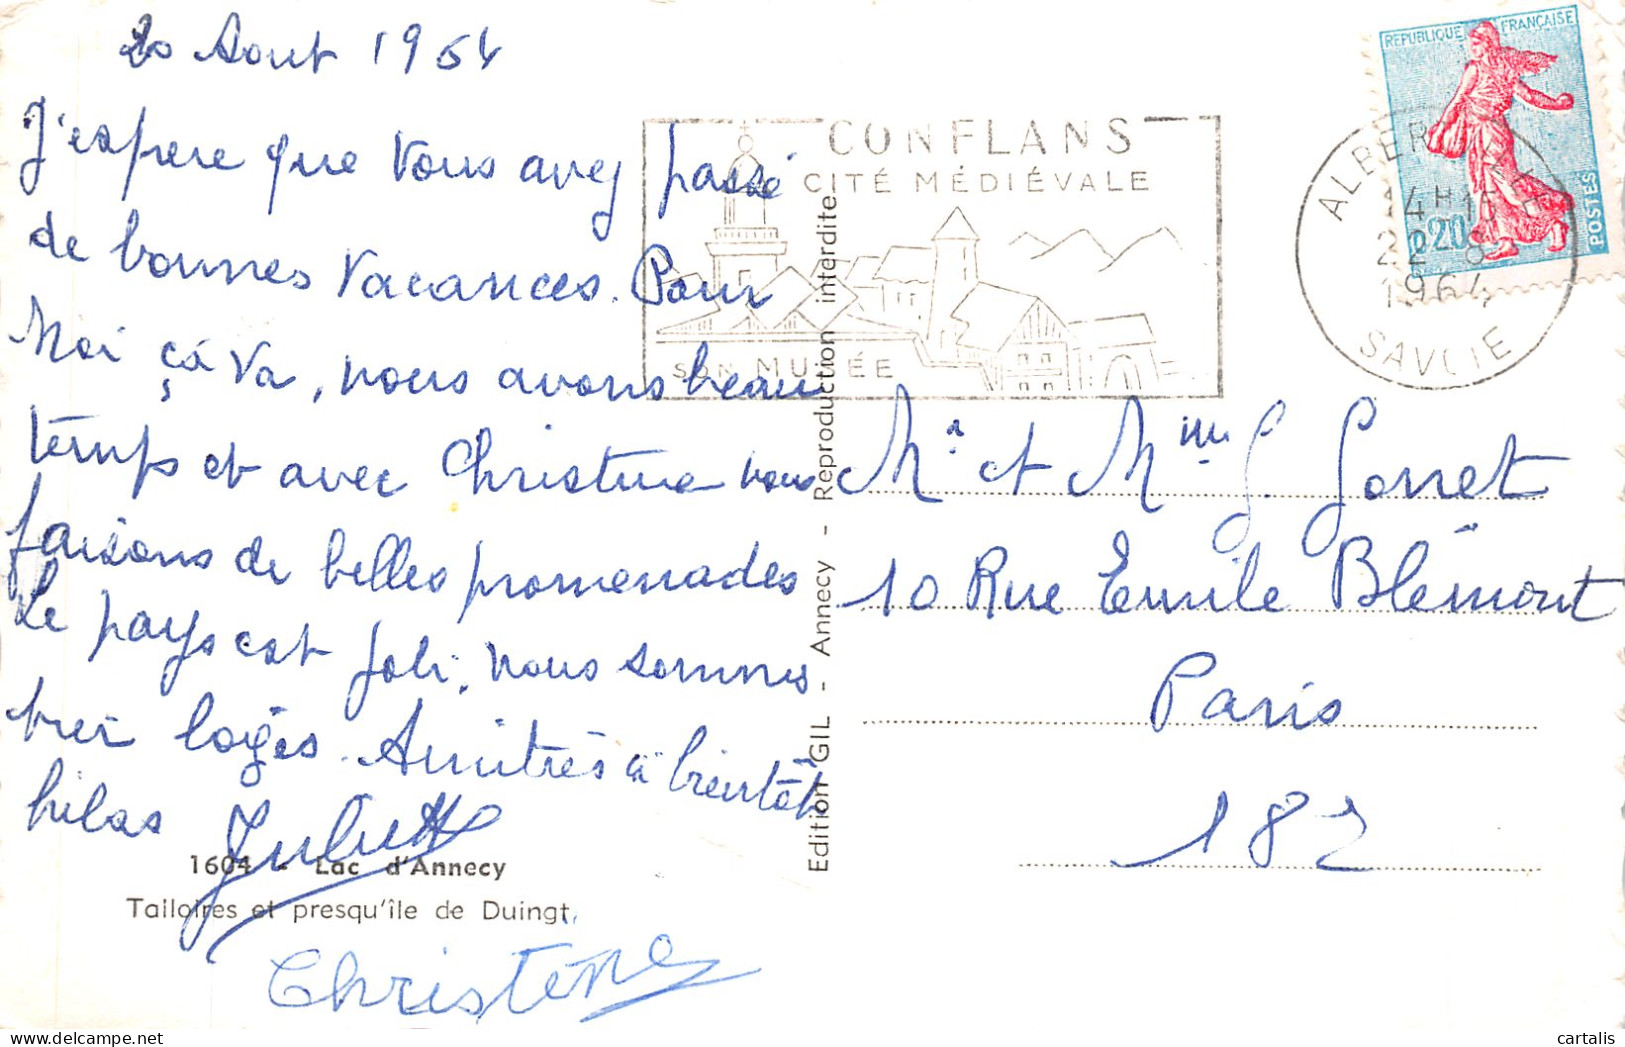 20 Aout 1964
J'espere que Vous avez passé
de bonnes Vacances. Pour
Moi çà Va, nous avons beau
temps et avec Christine nous
faisons de belles promenades
Le pays est joli, nous sommes
bien logés. Amitiés à bientôt
hélas Juliette
Christine
1604 - Lac d'Annecy
Talloires et presqu'île de Duingt.
Edition GIL - Annecy - Reproduction interdite
CONFLANS
CITÉ MÉDIÉVALE
SON MUSÉE
REPUBLIQUE FRANÇAISE
0,20
POSTES
ALBERTVILLE
14H15
22-8
1964
SAVOIE
Mr et Mme G. Gorret
10 Rue Emile Blémont
Paris
182
cartalis